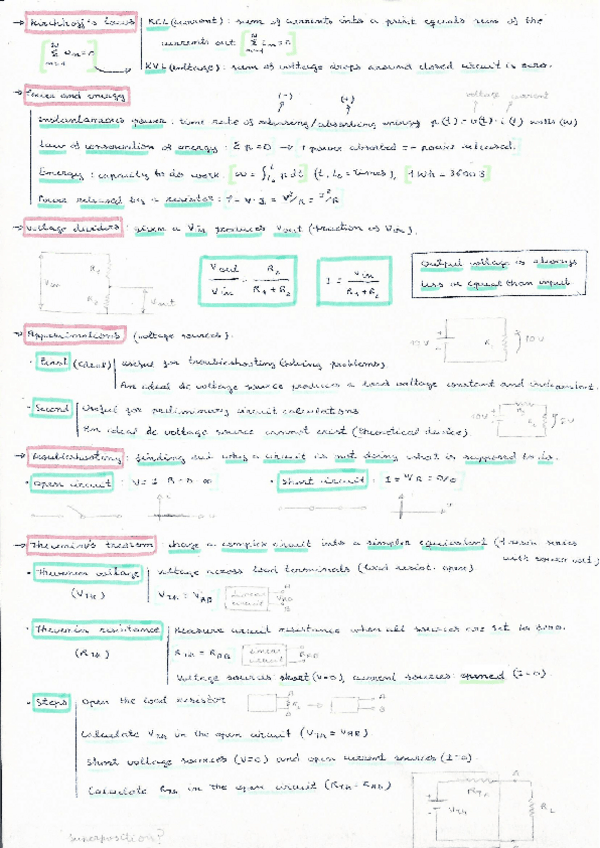 → Kirchoff's laws | KCL (current) : sum of currents into a point equals sum of the
currents out
KVL (voltage) : sum of voltage drops around closed circuit is zero.
→ Power and energy (-) (+) voltage current
Instantaneous power : time rate of releasing/absorbing energy p(t) = v(t) · i(t) watts (W)
Law of conservation of energy : Σ p = 0 → power absorbed = - power released.
Energy : capacity to do work. (t, t₀ = times), 1 Wh = 3600 J
Power released by a resistor :
→ Voltage dividers : given a Vin produces Vout (fraction of Vin).
Vout / Vin = R2 / R1 + R2
I = Vin / R1 + R2
Output voltage is always
less or equal than input
Vin R1 R2 Vout
→ Approximations (voltage sources).
10V RL 10V
· First (ideal) | useful for troubleshooting (solving problems).
An ideal dc voltage source produces a load voltage constant and
· Second | Useful for preliminary circuit calculations
An ideal dc voltage source cannot exist (theoretical device).
→ Troubleshooting : finding out why a circuit is not doing what is supposed to do.
· Open circuit :
· Short circuit :
→ Thevenin's theorem : change a complex circuit into a simpler equivalent
· Thevenin voltage | voltage across load terminals (load resist. open)
(VTH) VTH = VAB
Linear circuit
· Thevenin resistance | Measure circuit resistance when all sources are set to zero.
(RTH) RTH = RAB
Linear circuit
Voltage sources: short (V=0), current sources: opened (I=0)
· Steps | Open the load resistor
Calculate VTH in the open circuit (VTH = VAB).
Short voltage sources (V=0) and open current sources (I=0)
Calculate RTH in the open circuit (RTH = RAB)
RTH A
VTH RL
Superposition?